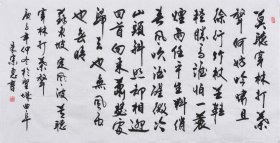 莫聽穿林打葉
聲何妨吟嘯且
徐行竹杖芒鞋
輕勝馬誰怕一蓑
煙雨任平生料峭
春風吹酒醒微冷
山頭斜照卻相迎
回首向來蕭瑟處
歸去也無風雨
也無晴
蘇東坡定風波莫聽
穿林打葉聲